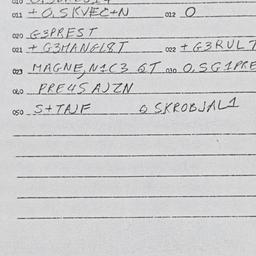 011 + 0,SKVEC+N 012 O
020 G3PREST
021 + G3MANGL8T 022 + G3RUL7
023 MAGNE,N1C3 QT 030 0,SG1PRE
040 PRE45AJZN
050 S+TAJF Q SKROBJAL1